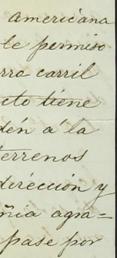 americana
le permiso
rro carril
ito tiene
dén á la
terrenos
dirección y
ñia agra=
pase por